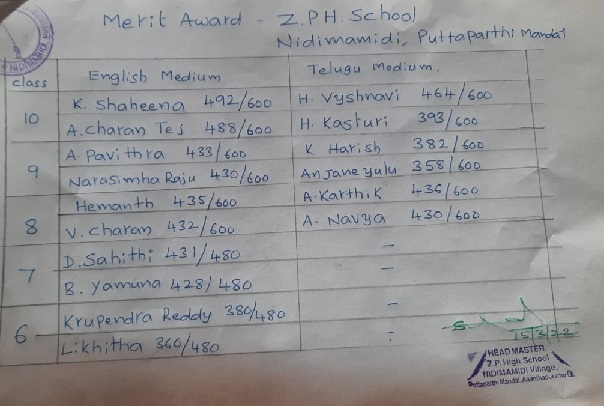 Merit Award - Z.P.H. School
Nidimamidi, Puttaparthi Mandal
class English Medium Telugu Medium
10 K. Shaheena 492/600 H. Vyshnavi 464/600
A. Charan Tes 488/600 H. Kasturi 393/600
9 A. Pavithra 433/600 K Harish 382/600
Narasimha Raju 430/600 Anjaneyulu 358/600
8 Hemanth 435/600 A. Karthik 436/600
V. Charan 432/600 A. Navya 430/600
7 D. Sahithi 431/480 -
B. Yamuna 428/480 -
6 Krupendra Reddy 380/480 -
Likhitha 360/480 :
15/3/22
HEAD MASTER
Z.P. High School
NIDIMAMIDI Village,